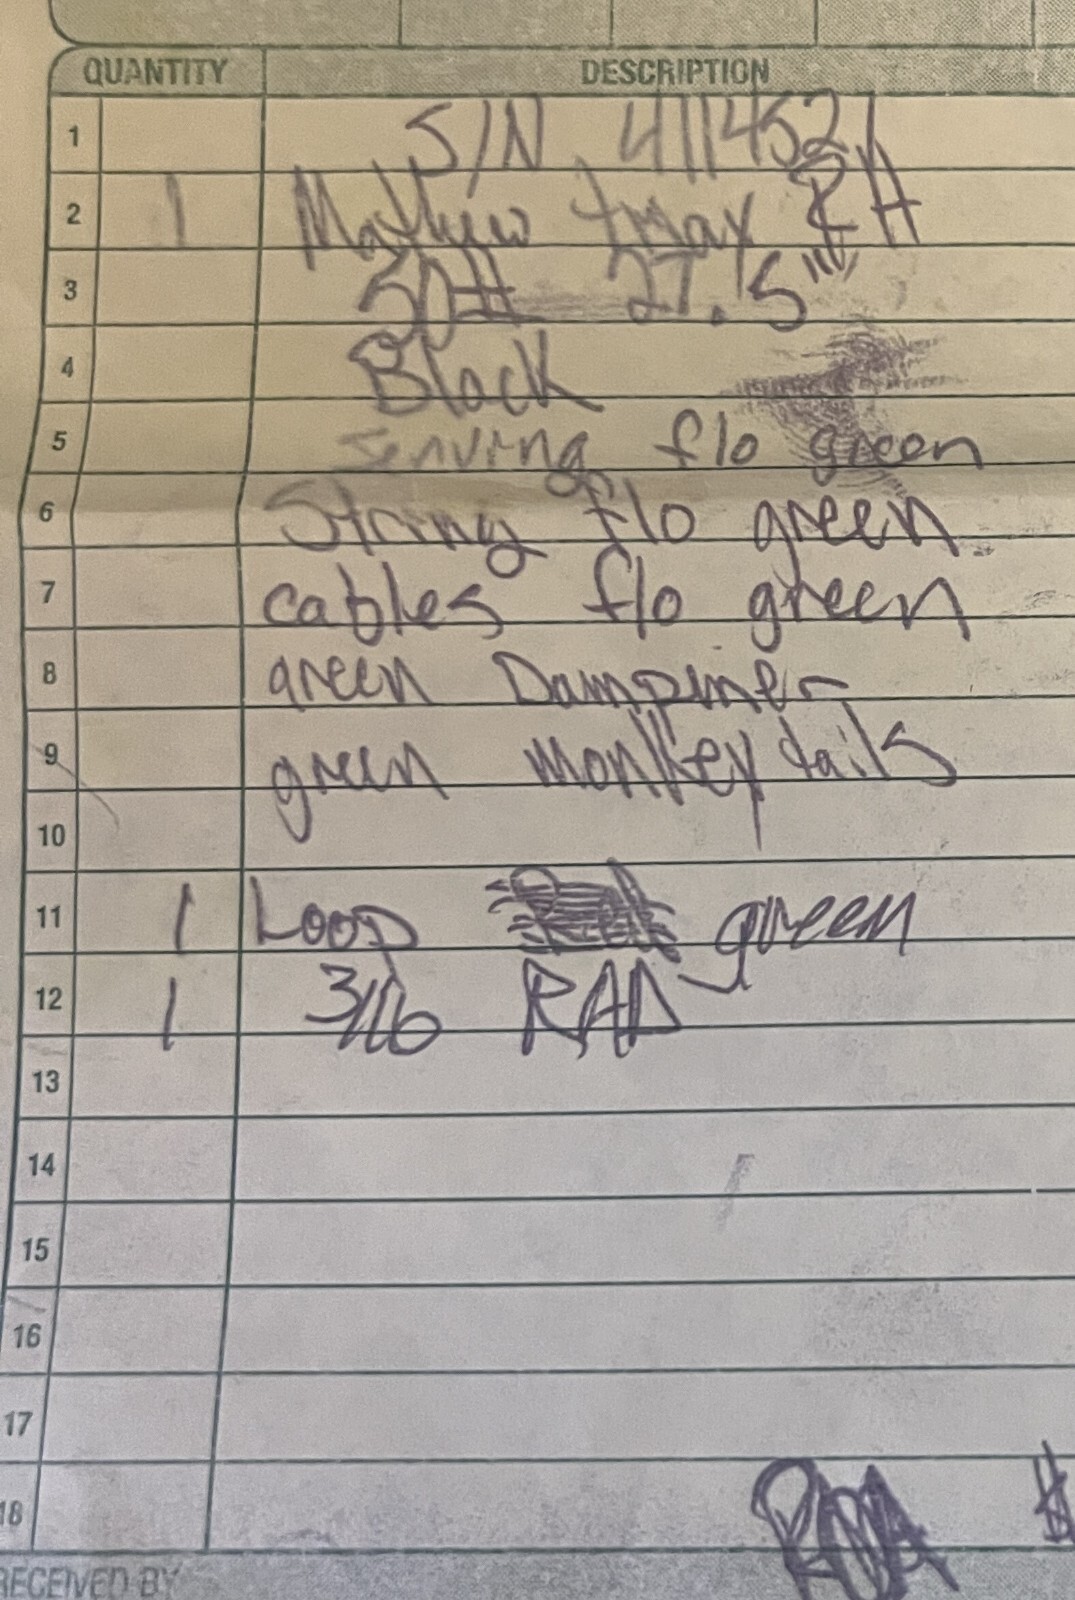 QUANTITY DESCRIPTION
1 S/N 4111452
2 1 Mathew tmax RH
3 50# 27.5"
4 Black
5 serving flo green
6 String flo green
7 cables flo green
8 green Dampiner
9 green monkey tails
10
11 1 Loop green
12 1 3/16 RAD
13
14
15
16
17
18
RECEIVED BY